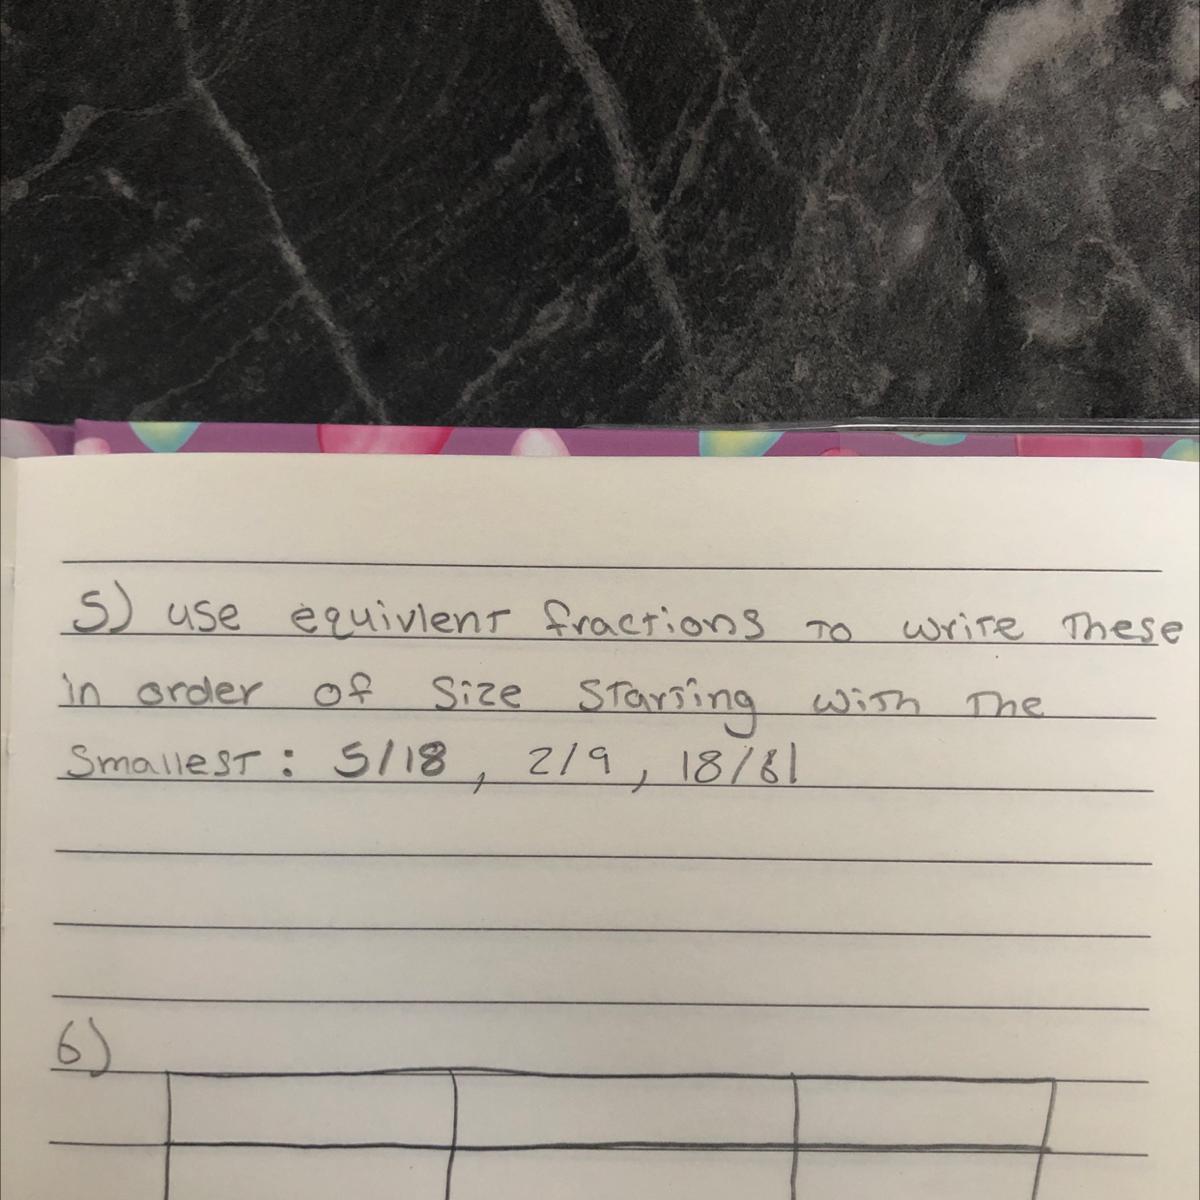 5) use equivlent fractions to write these
in order of size starting with the
smallest: 5/18, 2/9, 18/81
6)